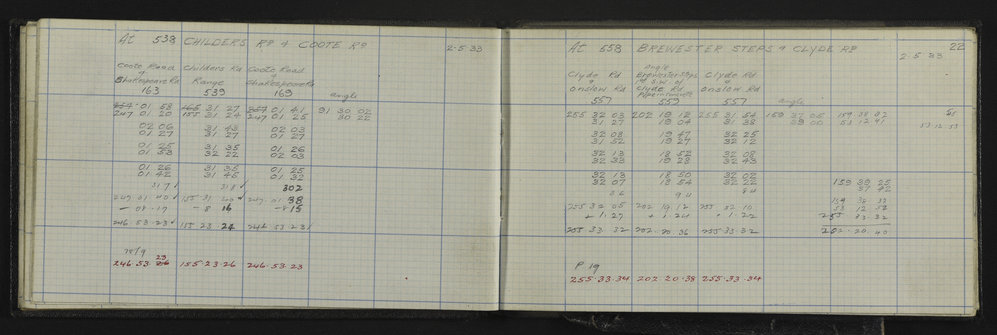 At 538 CHILDERS RD & COOTE RD 2-5-33
Coote Road Childers Rd Coote Road
& &
Shakespeare Rd Range Shakespeare Rd
163 539 169 angle
01 58 31 27 01 41 91 30 02
247 01 20 155 31 24 247 01 25 30 22
02 06 31 43 02 03
01 27 31 27 01 27
01 25 31 35 01 26
01 53 32 22 02 03
01 26 31 35 01 25
01 42 31 45 01 32
317 318 302
247 31 155 31 247 01 38
- 08 17 - 8 16 - 8 15
246 53 23 155 23 24 246 53 23
246.53. 155.23.26 246.53.23
22
At 558 BREWESTER STEPS & CLYDE RD
2-5-33
Angle
Clyde Rd Brewester Steps Clyde Rd
& 1st S.W. of &
Onslow Rd Clyde Rd Onslow Rd
557 559 557 angle
255 32 03 202 19 12 255 31 54 159 37 05 159 38 32
31 27 19 04 31 38 39 00 53 12 41
32 08 19 47 32 25
31 52 19 27 32 12
32 13 18 52 32 08
32 33 19 23 32 43
32 13 18 50 32 02 159 39 25
32 07 18 54 32 22 37 42
255 32 05 202 19 12 255 32 10
+ 1.27 + 1.24 + 1.22
255 33 32 202.20.36 255 33 32 202.20.40
P 19
255.33.34 202.20.38 255.33.34